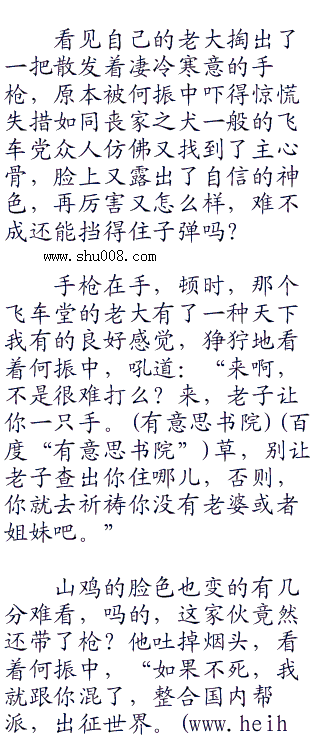 看见自己的老大掏出了
一把散发着凄冷寒意的手
枪，原本被何振中吓得惊慌
失措如同丧家之犬一般的飞
车党众人仿佛又找到了主心
骨，脸上又露出了自信的神
色，再厉害又怎么样，难不
成还能挡得住子弹吗？
www.shu008.com
手枪在手，顿时，那个
飞车堂的老大有了一种天下
我有的良好感觉，狰狞地看
着何振中，吼道：“来啊，
不是很难打么？来，老子让
你一只手。(有意思书院)(百
度“有意思书院”)草，别让
老子查出你住哪儿，否则，
你就去祈祷你没有老婆或者
姐妹吧。”
山鸡的脸色也变的有几
分难看，吗的，这家伙竟然
还带了枪？他吐掉烟头，看
着何振中，“如果不死，我
就跟你混了，整合国内帮
派，出征世界。(www.heih